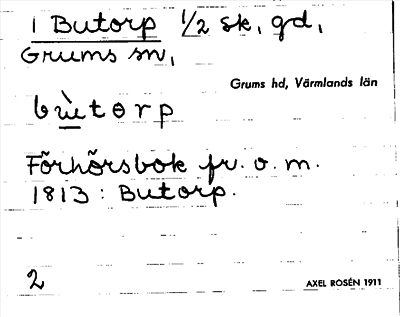 1 Butorp 1/2 sk, gd,
Grums sn,
Grums hd, Värmlands län
bùtorp
Förhörsbok fr. o. m.
1813: Butorp.
2
AXEL ROSÉN 1911